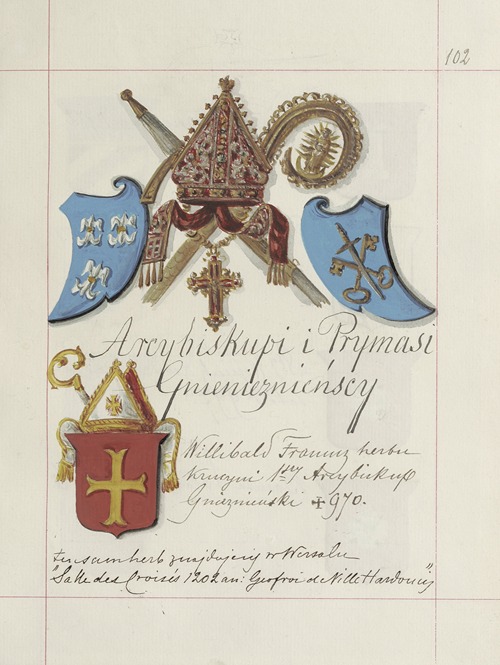 102
Arcybiskupi i Prymasi
Gnienieznieńscy
Willibald Francuz herbu
Krucyni 1szy Arcybiskup
Gnieźnieński ✠ 970.
tensam herb znajdujemy w Wersalu
"Salle des Croisés 1202 an: Geofroi de Ville Hardouin"